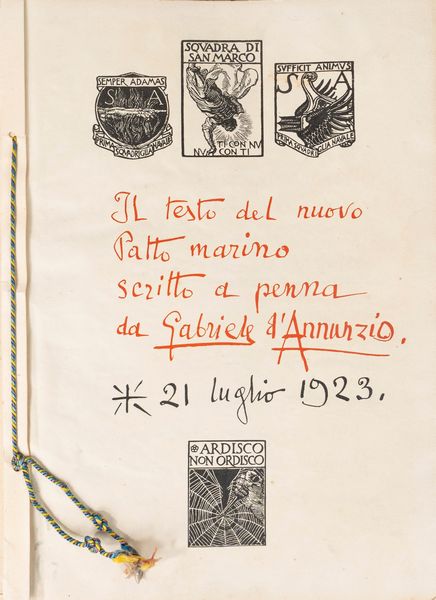 SEMPER ADAMAS
S A
PRIMA SQUADRIGLIA NAVALE
SQVADRA DI
SAN MARCO
TI CON NV
NV CON TI
SVFFICIT ANIMVS
S A
PRIMA SQUADRIGLIA NAVALE
Il testo del nuovo
Patto marino
scritto a penna
da Gabriele d'Annunzio.
21 luglio 1923.
ARDISCO
NON ORDISCO